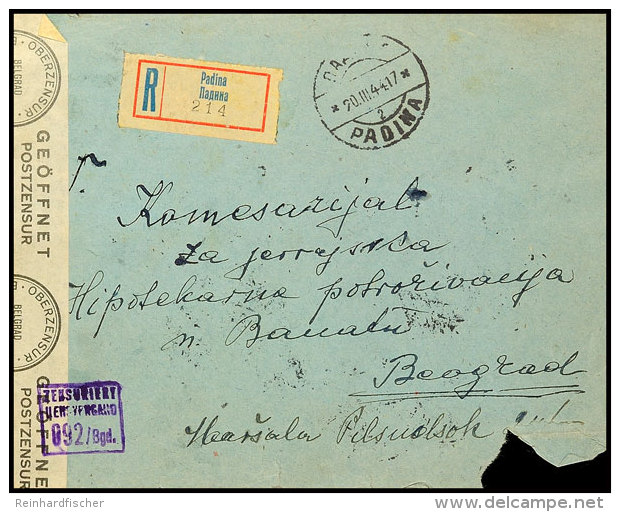 OBERZENSUR
BELGRAD
GEÖFFNET
POSTZENSUR
OBERZENSUR
BELGRAD
POSTZENSUR
R
Padina
Падина
214
20.III.44.17
2
PADINA
Komesarijat
za jevrejska
Hipotekarna potraživanja
u Banatu
Beograd
Maršala Pilsudsok
ZENSURIERT
092/Bgd.
Reinhardfischer
delcampe.net